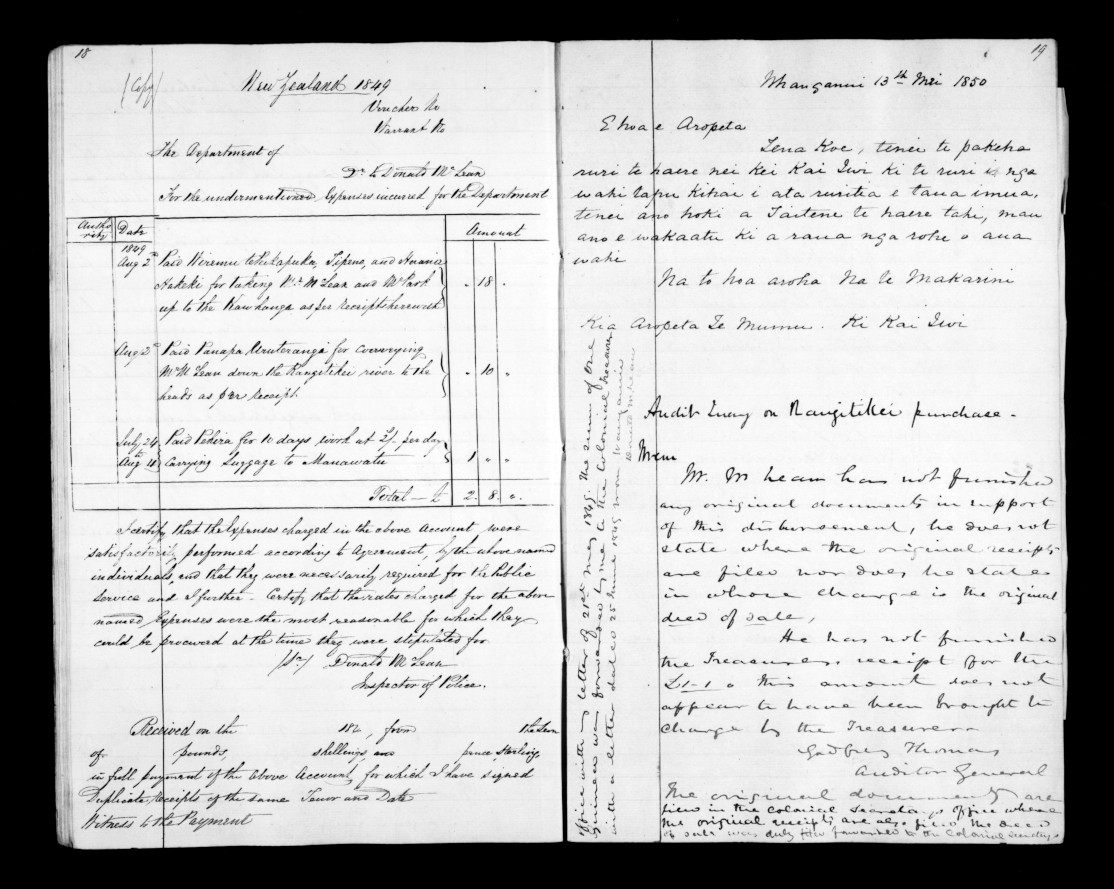 18
(Copy) New Zealand 1849
Voucher No
Warrant No
The Department of
Dr. to Donald McLean
For the undermentioned Expenses incurred for the Department
Autho
rity Date Amount
1849
Aug 2d Paid Wiremu Tipene, and
for taking Mr. McLean and Mr Park " 18 "
up to the Kawhanga as per receipts herewith
Aug 2d Paid Panapa for conveying
Mr McLean down the Rangitikei river to the " 10 "
heads as per receipt.
July 24 Paid Pehira for 10 days work at 2/. per day
to Aug 4 Carrying Luggage to Manawatu 1 " "
Total — £ 2. 8. ".
I certify that the Expenses charged in the above Account were
satisfactorily performed according to Agreement, by the above named
individuals, and that they were necessarily required for the Public
Service and I further - Certify that the rates charged for the above
named Expenses were the most reasonable for which they
could be procured at the time they were stipulated for
Donald McLean
Inspector of Police.
Received on the 184 , from the Sum
of pounds, shillings, and pence Sterling,
in full payment of the above Account, for which I have signed
Duplicate Receipts of the same Tenor and Date
Witness to the Payment
19
Whanganui 13th Mei 1850
E hoa e Aropeta
Tena Koe, tenei te pakeha
ruri te haere nei kei Kai Iwi ki te ruri i nga
wahi tapu kihai i ata ruritia e taua imua,
tenei ano hoki a Taitene te haere tahi, mau
ano e wakaatu ki a raua nga rohe o aua
wahi
Na to hoa aroha Na te Makarini
Kia Aropeta Te Mumu. Ki Kai Iwi
Audit Query on Rangitikei purchase -
Mem
Mr. McLean has not furnished
any original documents in support
of this disbursement, he does not
state where the original receipts
are filed nor does he state
in whose charge is the original
deed of sale,
He has not furnished
the Treasurers receipt for the
£1-1-0 this amount does not
appear to have been brought to
charge by the Treasurer
Godfrey Thomas
Auditor General
The original documents are
filed in the Colonial Secretary's Office where
the original receipts are also filed the deed
of sale was duly forwarded to the Colonial Secretary.
letter of 21st May 1849. The sum of one
Guinea was forwarded by me to the Colonial treasurer
with a letter dated 25 June 1849 from Wanganui